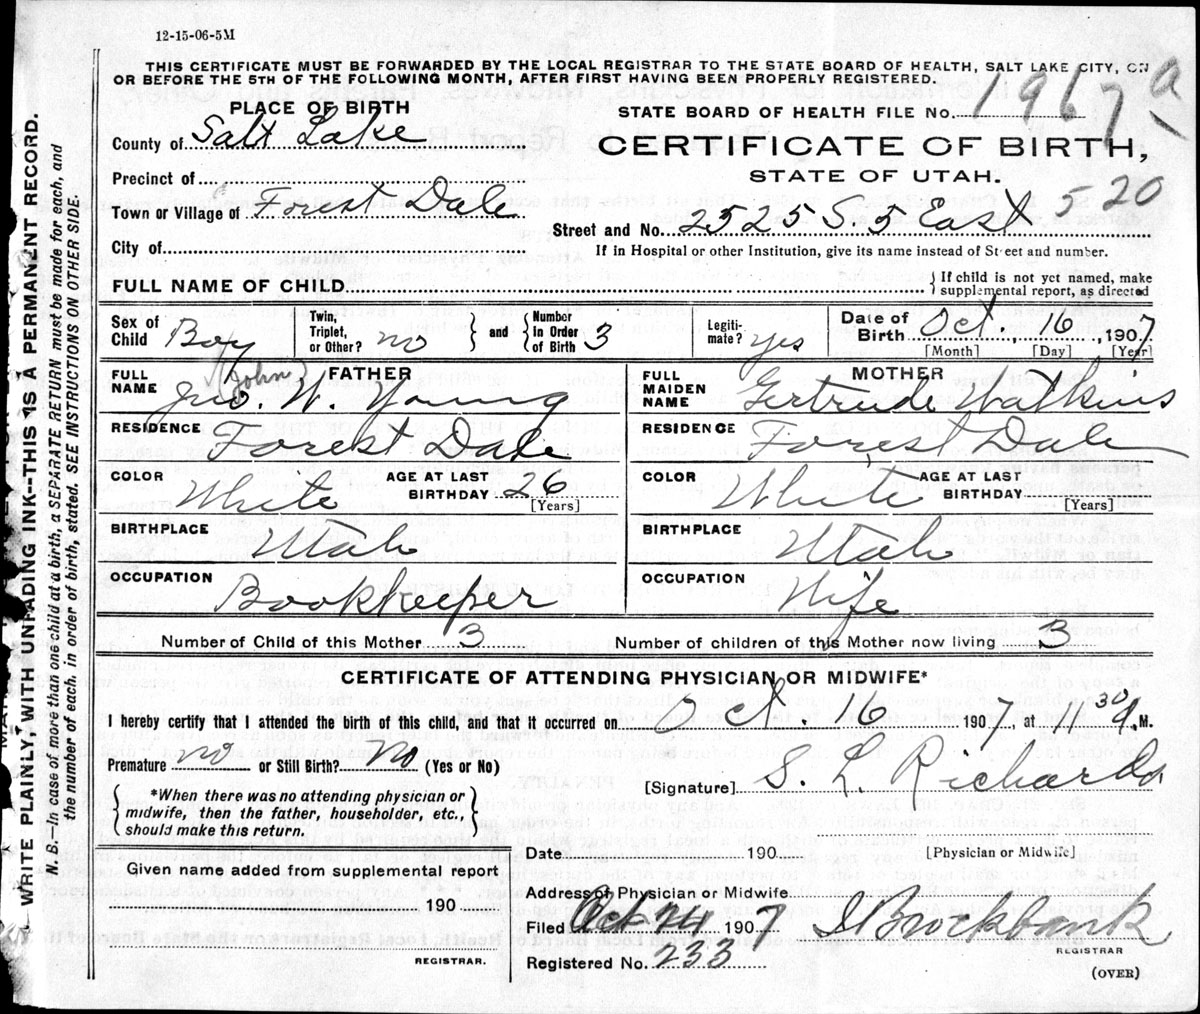 12-15-06-5M
THIS CERTIFICATE MUST BE FORWARDED BY THE LOCAL REGISTRAR TO THE STATE BOARD OF HEALTH, SALT LAKE CITY, ON
OR BEFORE THE 5TH OF THE FOLLOWING MONTH, AFTER FIRST HAVING BEEN PROPERLY REGISTERED.
PLACE OF BIRTH
STATE BOARD OF HEALTH FILE No. 1967 a
County of Salt Lake
CERTIFICATE OF BIRTH,
STATE OF UTAH.
Precinct of
520
Town or Village of Forest Dale
Street and No. 2525 S. 5 East
City of
If in Hospital or other Institution, give its name instead of Street and number.
FULL NAME OF CHILD
If child is not yet named, make
supplemental report, as directed
Sex of Child Boy
Twin, Triplet, or Other? no
and
Number in Order of Birth 3
Legitimate? yes
Date of Birth Oct. 16, 1907
[Month] [Day] [Year]
FATHER
FULL NAME Jno. (John) W. Young
RESIDENCE Forest Dale
COLOR White
AGE AT LAST BIRTHDAY 26
[Years]
BIRTHPLACE Utah
OCCUPATION Bookkeeper
MOTHER
FULL MAIDEN NAME Gertrude Watkins
RESIDENCE Forest Dale
COLOR White
AGE AT LAST BIRTHDAY
[Years]
BIRTHPLACE Utah
OCCUPATION Wife
Number of Child of this Mother 3
Number of children of this Mother now living 3
CERTIFICATE OF ATTENDING PHYSICIAN OR MIDWIFE*
I hereby certify that I attended the birth of this child, and that it occurred on Oct. 16 1907, at 11 30 A. M.
Premature no or Still Birth? No (Yes or No)
[Signature] S. L. Richards
*When there was no attending physician or
midwife, then the father, householder, etc.,
should make this return.
Date 190
[Physician or Midwife]
Given name added from supplemental report
190
REGISTRAR.
Address of Physician or Midwife
Filed Oct 24 1907
Brockbank
REGISTRAR
Registered No. 233
(OVER)
WRITE PLAINLY, WITH UNFADING INK--THIS IS A PERMANENT RECORD.
N. B.—In case of more than one child at a birth, a SEPARATE RETURN must be made for each, and
the number of each, in order of birth, stated. SEE INSTRUCTIONS ON OTHER SIDE.